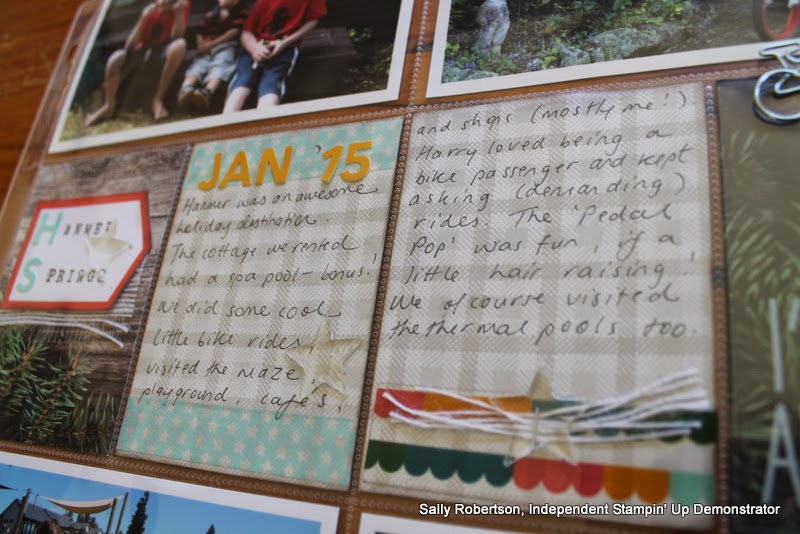 HANMER
SPRINGS
JAN '15
Hanmer was an awesome
holiday destination.
The cottage we rented
had a spa pool - bonus!
We did some cool
little bike rides,
visited the maze,
playground, cafe's,
and shops (mostly me!)
Harry loved being a
bike passenger and kept
asking (demanding)
rides. The 'Pedal
Pop' was fun, if a
little hair raising!
We of course visited
the thermal pools too.
A
Sally Robertson, Independent Stampin' Up Demonstrator